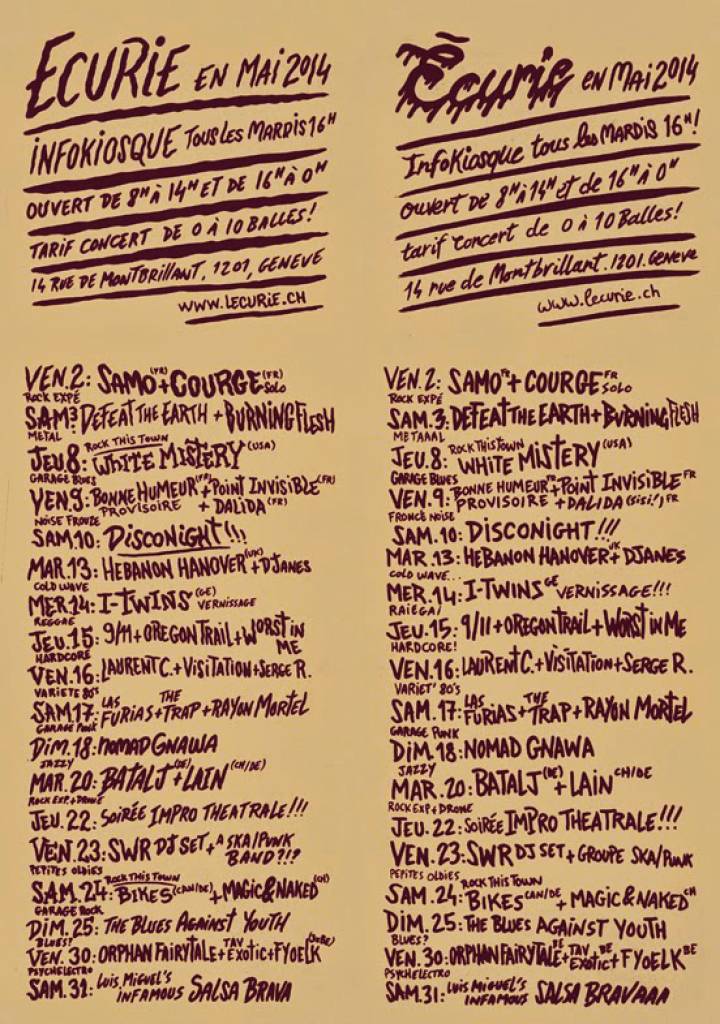 ECURIE EN MAI 2014
INFOKIOSQUE TOUS LES MARDIS 16H
OUVERT DE 8H À 14H ET DE 16H À 0H
TARIF CONCERT DE 0 À 10 BALLES!
14 RUE DE MONTBRILLANT, 1201, GENEVE
WWW.LECURIE.CH
VEN.2: SAMO (FR) + COURGE (FR) SOLO
ROCK EXPÉ
SAM3: DEFEAT THE EARTH + BURNING FLESH
METAL
ROCK THIS TOWN
JEU.8: WHITE MISTERY (USA)
GARAGE BLUES
VEN.9: BONNE HUMEUR (FR) + POINT INVISIBLE (FR)
PROVISOIRE + DALIDA (FR)
NOISE
SAM.10: DISCONIGHT!!!
MAR.13: HEBANON HANOVER (UK) + DJANES
COLD WAVE
MER.14: I-TWINS (GE) VERNISSAGE
REGGAE
JEU.15: 9/11 + OREGON TRAIL + WORST IN ME
HARDCORE
VEN.16: LAURENT C. + VISITATION + SERGE R.
VARIETE 80'S
SAM.17: LAS FURIAS + THE TRAP + RAYON MORTEL
GARAGE PUNK
DIM.18: NOMAD GNAWA
JAZZY
MAR.20: BATALJ (BE) + LAIN (CH/DE)
ROCK EXP. + DRONE
JEU.22: SOIRÉE IMPRO THEATRALE!!!
VEN.23: SWR DJ SET + A SKA/PUNK BAND?!?
PEPITES OLDIES
ROCK THIS TOWN
SAM.24: BIKES (CAN/DE) + MAGIC & NAKED (CH)
GARAGE ROCK
DIM.25: THE BLUES AGAINST YOUTH
BLUES?
VEN.30: ORPHAN FAIRYTALE + TAV EXOTIC + FYOELK
PSYCHELECTRO
SAM.31: LUIS MIGUEL'S INFAMOUS SALSA BRAVA
Écurie en MAI 2014
Infokiasque tous les MARDIS 16H!
ouvert de 8H à 14H et de 16H à 0H
tarif concert de 0 à 10 Balles!
14 rue de Montbrillant. 1201. Geneve
www.lecurie.ch
VEN.2: SAMO FR + COURGE FR SOLO
ROCK EXPÉ
SAM.3: DEFEAT THE EARTH + BURNING FLESH
METAAAL
ROCK THIS TOWN
JEU.8: WHITE MISTERY (USA)
GARAGE BLUES
VEN.9: BONNE HUMEUR FR + POINT INVISIBLE FR
PROVISOIRE + DALIDA (SISI!) FR
FRONCE NOISE
SAM.10: DISCONIGHT!!!
MAR.13: HEBANON HANOVER UK + DJANES
COLD WAVE...
MER.14: I-TWINS GE VERNISSAGE!!!
RAIEGAI
JEU.15: 9/11 + OREGON TRAIL + WORST IN ME
HARDCORE!
VEN.16: LAURENT C. + VISITATION + SERGE R.
VARIET' 80'S
SAM.17: LAS FURIAS + THE TRAP + RAYON MORTEL
GARAGE PUNK
DIM.18: NOMAD GNAWA
JAZZY
MAR.20: BATALJ (BE) + LAIN CH/DE
ROCK EXP + DRONE
JEU.22: SOIRÉE IMPRO THEATRALE!!!
VEN.23: SWR DJ SET + GROUPE SKA/PUNK
PEPITES OLDIES
ROCK THIS TOWN
SAM.24: BIKES CAN/DE + MAGIC & NAKED CH
DIM.25: THE BLUES AGAINST YOUTH
BLUES?
VEN.30: ORPHAN FAIRYTALE BE + TAV EXOTIC BE + FYOELK BE
PSYCHELECTRO
SAM.31: LUIS MIGUEL'S INFAMOUS SALSA BRAVAAA